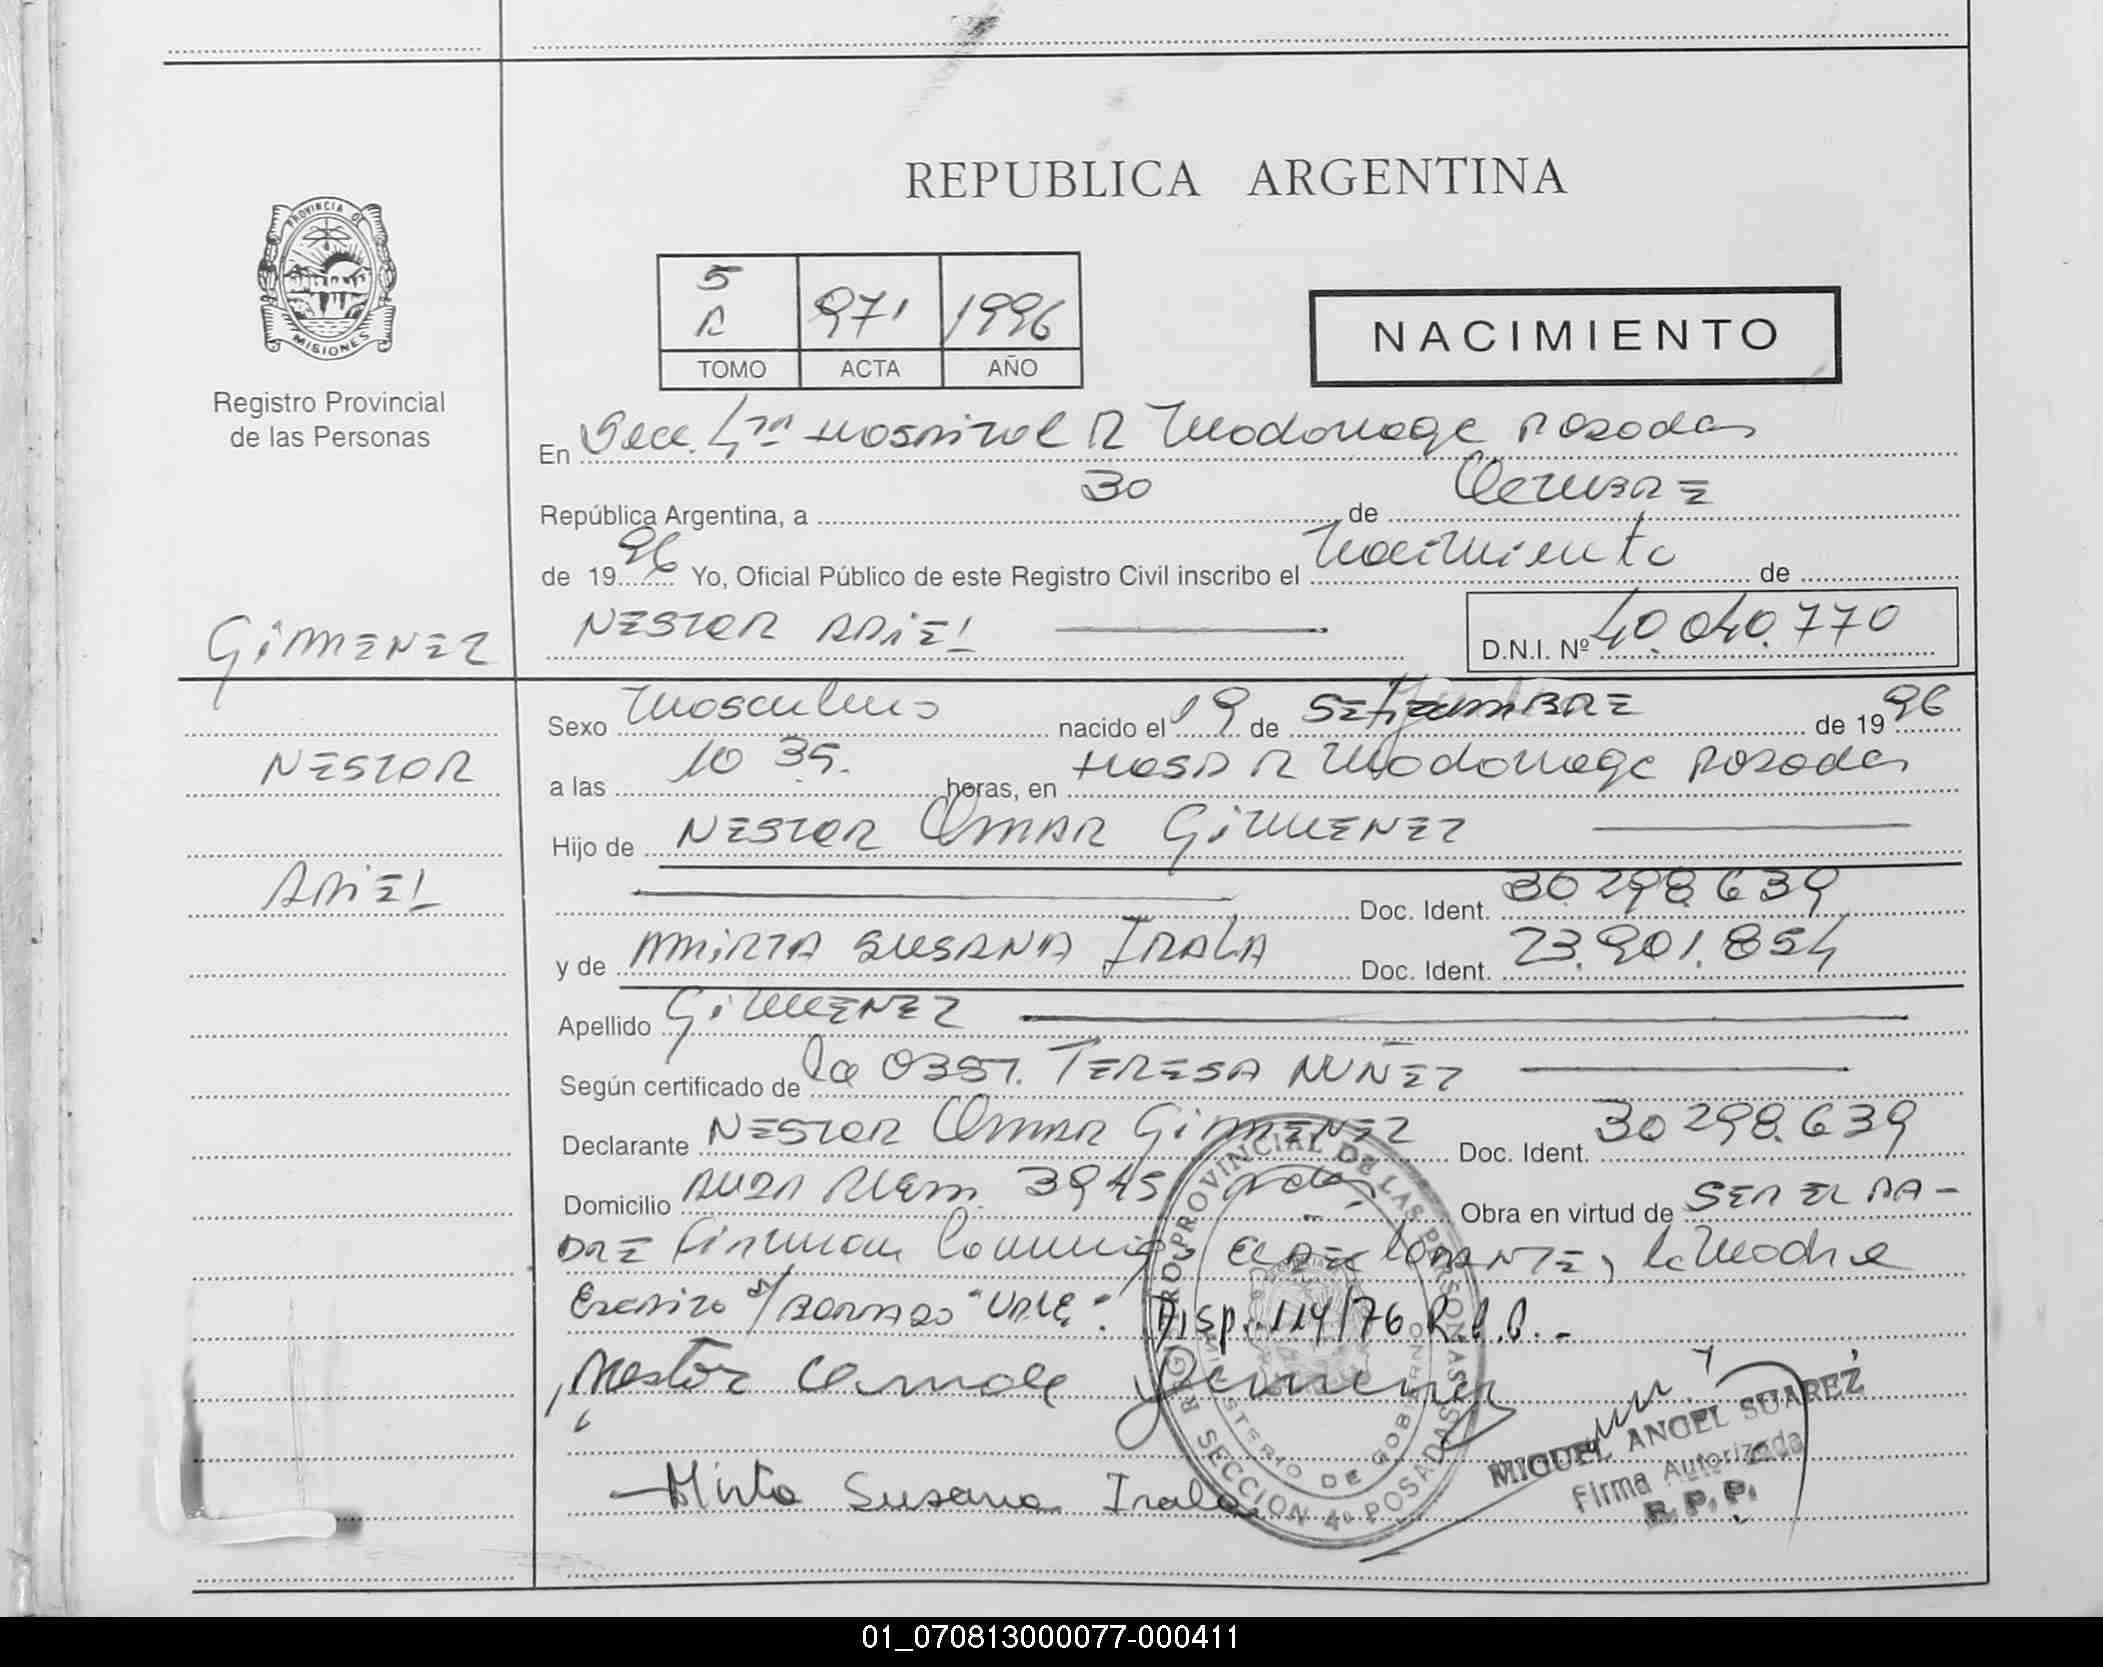 REPUBLICA ARGENTINA
PROVINCIA DE
MISIONES
Registro Provincial
de las Personas
5
R 971 1996
TOMO ACTA AÑO
NACIMIENTO
En Secc. 4ta Hospital R Madariaga Posadas
República Argentina, a 30 de Octubre
de 1996 Yo, Oficial Público de este Registro Civil inscribo el Nacimiento de
GIMENEZ NESTOR ARIEL D.N.I. Nº 40.040.770
Sexo Masculino nacido el 19 de SETIEMBRE de 1996
NESTOR
a las 10 35. horas, en Hosp R Madariaga Posadas
Hijo de NESTOR OMAR GIMENEZ
ARIEL
Doc. Ident. 30.298.639
y de MIRTA SUSANA IRALA Doc. Ident. 23.901.854
Apellido GIMENEZ
Según certificado de la OBST. TERESA NUÑEZ
Declarante NESTOR OMAR GIMENEZ Doc. Ident. 30 298.639
Domicilio 3945 Obra en virtud de SER EL PA-
DRE Firman El DEClARANTE, la Madre
Escrito s/ BORRADO "VALE". Disp. 114/76 R.P.P.-
Nestor Gimenez
Mirta Susana Irala
REGISTRO PROVINCIAL DE LAS PERSONAS
MINISTERIO DE GOBIERNO
SECCION 4º POSADAS
MIGUEL ANGEL SUAREZ
Firma Autorizada
R. P. P.
01_070813000077-000411